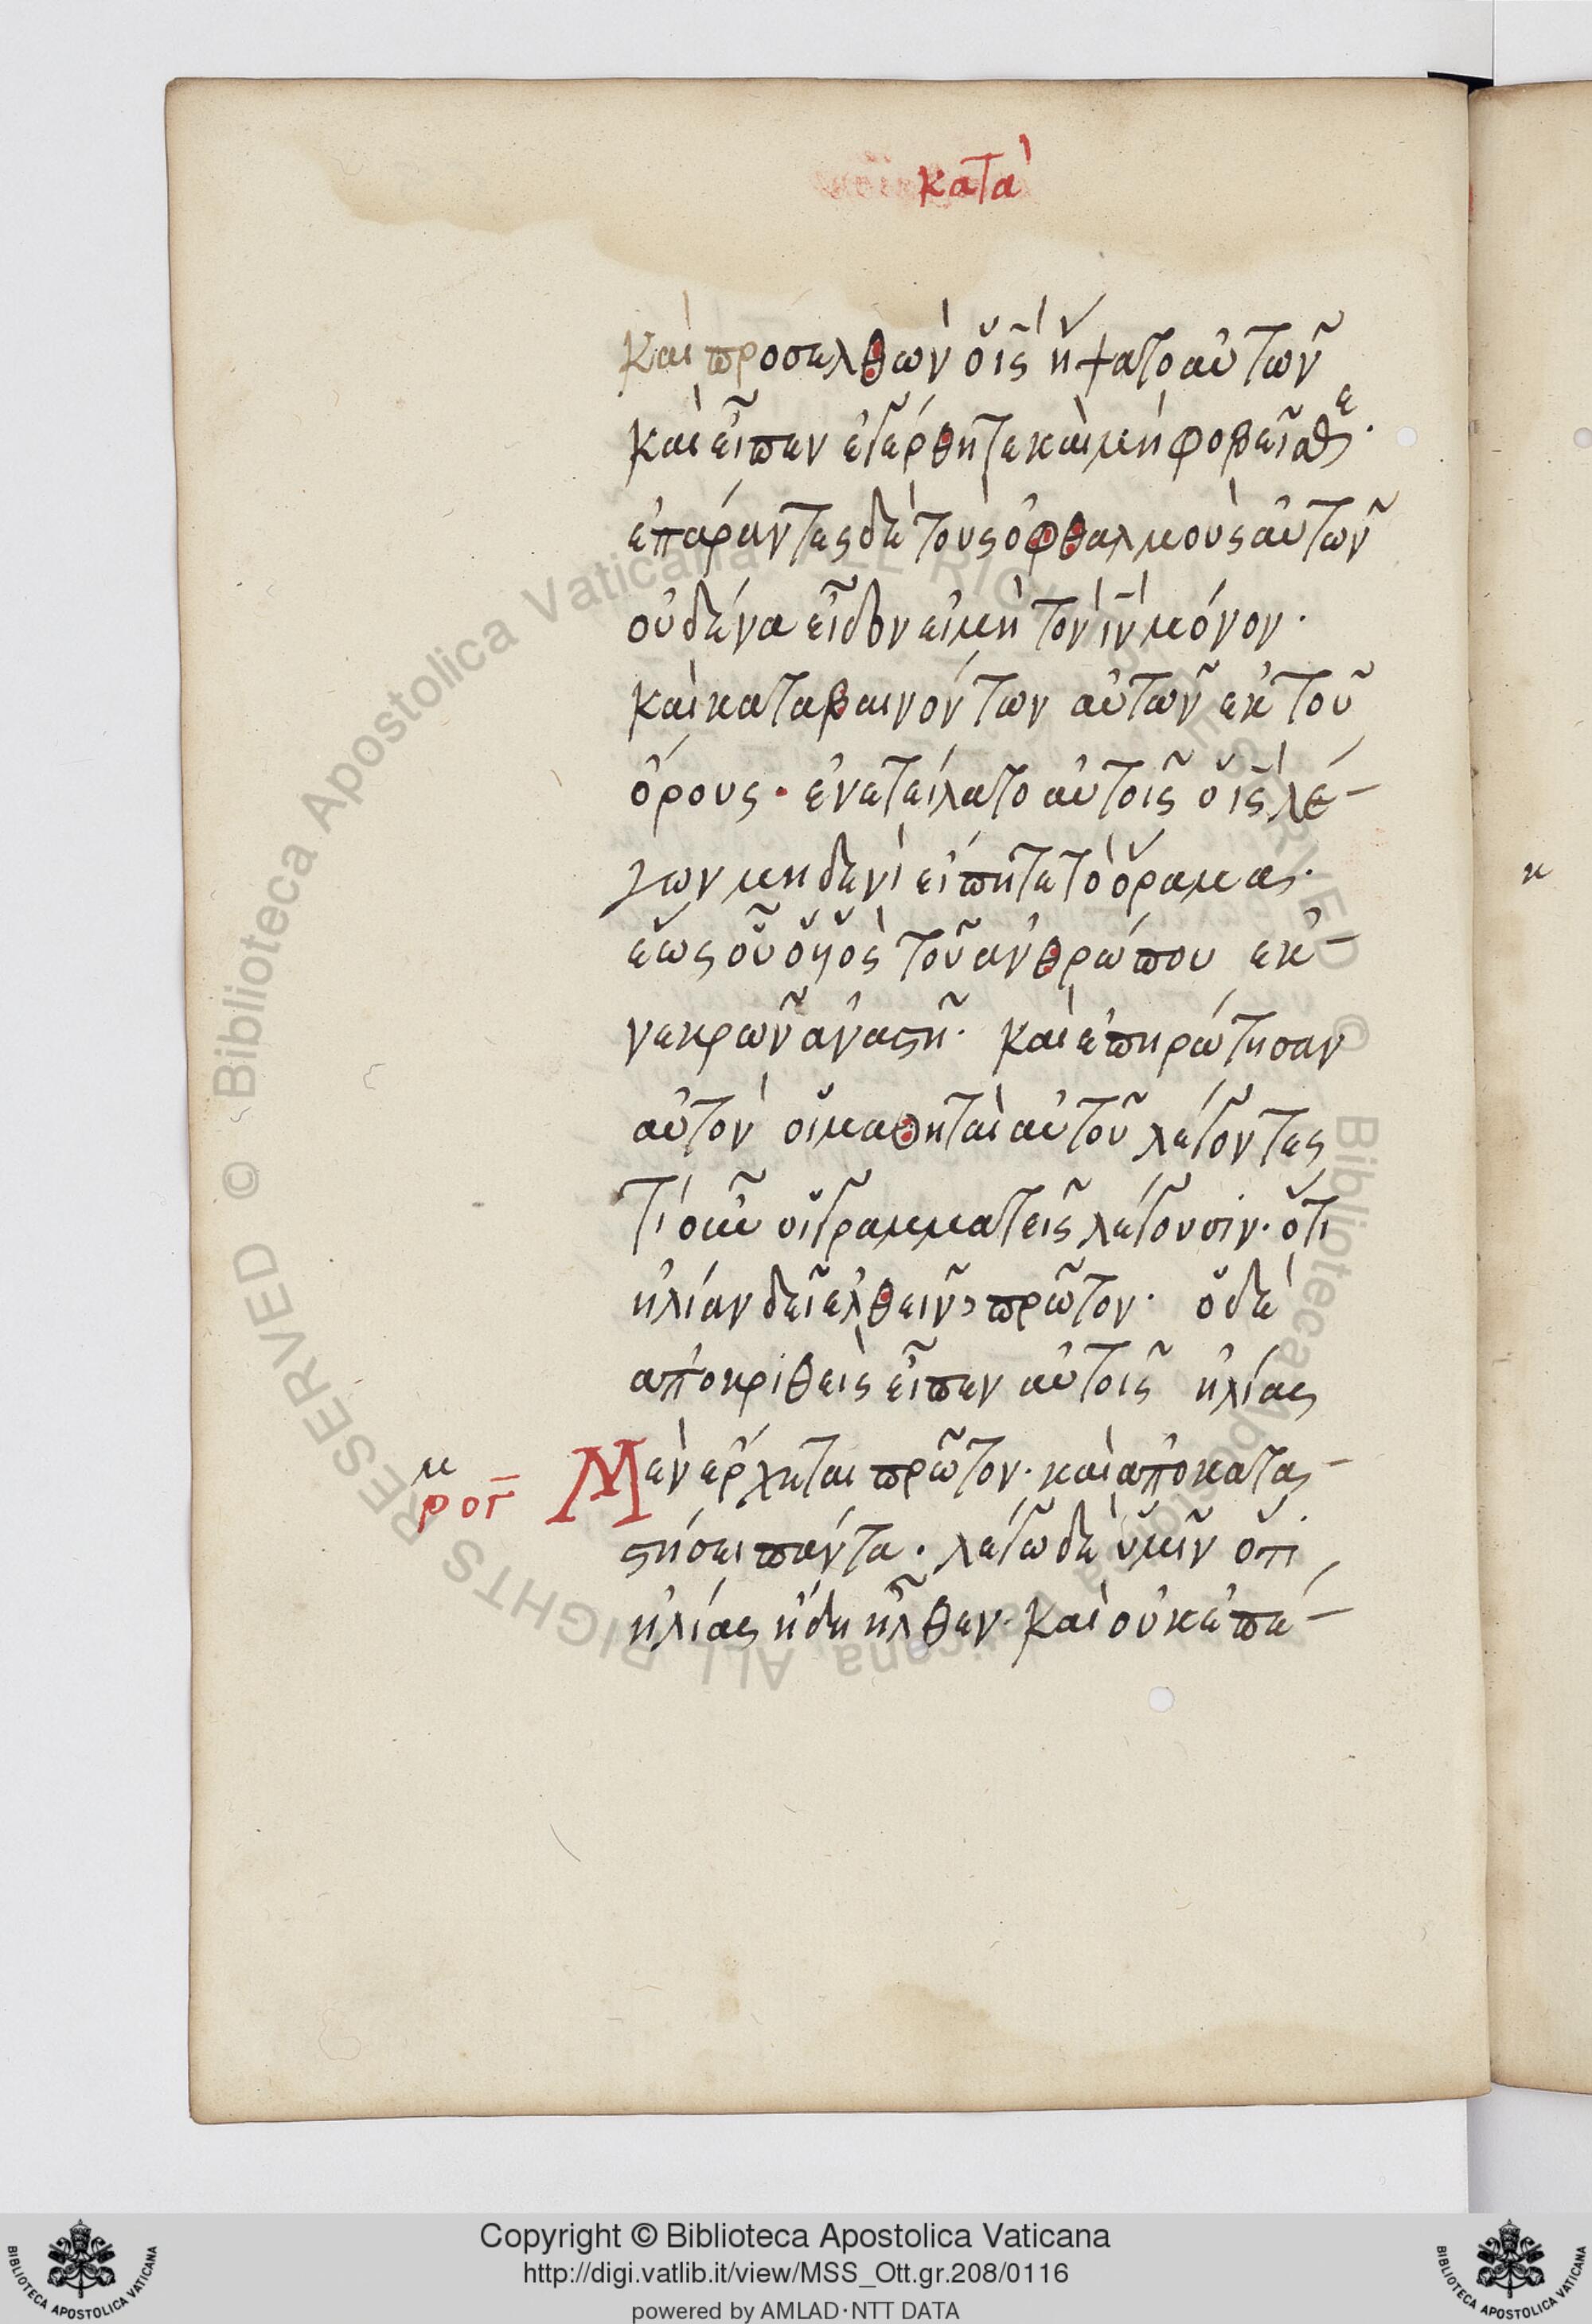 κατὰ
Καὶ προσελθὼν ὁ ις ἥψατο αὐτῶν
καὶ εἶπεν ἐγέρθητε καὶ μὴ φοβεῖσθε·
ἐπάραντες δὲ τοὺς ὀφθαλμοὺς αὐτῶν
οὐδένα εἶδον εἰμὴ τὸν ιν μόνον·
καὶ καταβαινόντων αὐτῶν ἐκ τοῦ
ὄρους· ἐνετείλατο αὐτοῖς ὁ ις λέ-
γων μηδενὶ εἴπητε τὸ ὅραμα
ἕως οὗ ὁ υἱὸς τοῦ ἀνθρώπου ἐκ-
νεκρῶν ἀναστῆ· καὶ ἐπηρώτησαν
αὐτὸν οἱ μαθηταὶ αὐτοῦ λέγοντες
Τί οὖν οἱ γραμματεῖς λέγουσιν· ὅτι
ἠλίαν δεῖ ἐλθεῖν πρῶτον· ὁ δὲ
ἀποκριθεὶς εἶπεν αὐτοῖς ἠλίας
μ
ρογ
Μὲν ἔρχεται πρῶτον· καὶ ἀποκατας-
στήσει πάντα· λέγω δὲ ὑμῖν ὅτι
ἠλίας ἤδη ἦλθεν· καὶ οὐκ ἐπέ-
© Biblioteca Apostolica Vaticana ALL RIGHTS RESERVED © Biblioteca Apostolica Vaticana ALL RIGHTS RESERVED
Copyright © Biblioteca Apostolica Vaticana
http://digi.vatlib.it/view/MSS_Ott.gr.208/0116
powered by AMLAD·NTT DATA
BIBLIOTECA APOSTOLICA VATICANA
BIBLIOTECA APOSTOLICA VATICANA